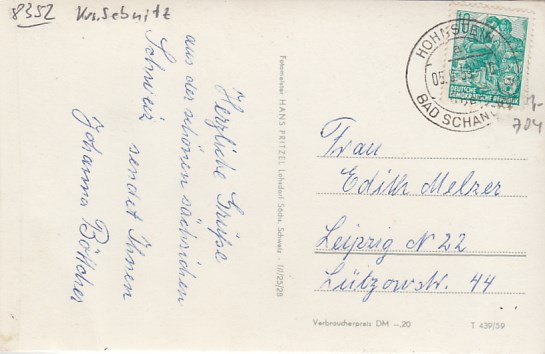 8352 Kr. Sebnitz
Herzliche Grüße
aus der schönen sächsischen
Schweiz sendet Ihnen
Johanna Böttcher
Fotomeister HANS PRITZEL Lohsdorf Sächs. Schweiz - III/25/26
10
DEUTSCHE
DEMOKRATISCHE REPUBLIK
BAD SCHAN
704
Frau
Edith Melzer
Leipzig N 22
Lützowstr. 44
Verbraucherpreis DM -,20
T 439/59